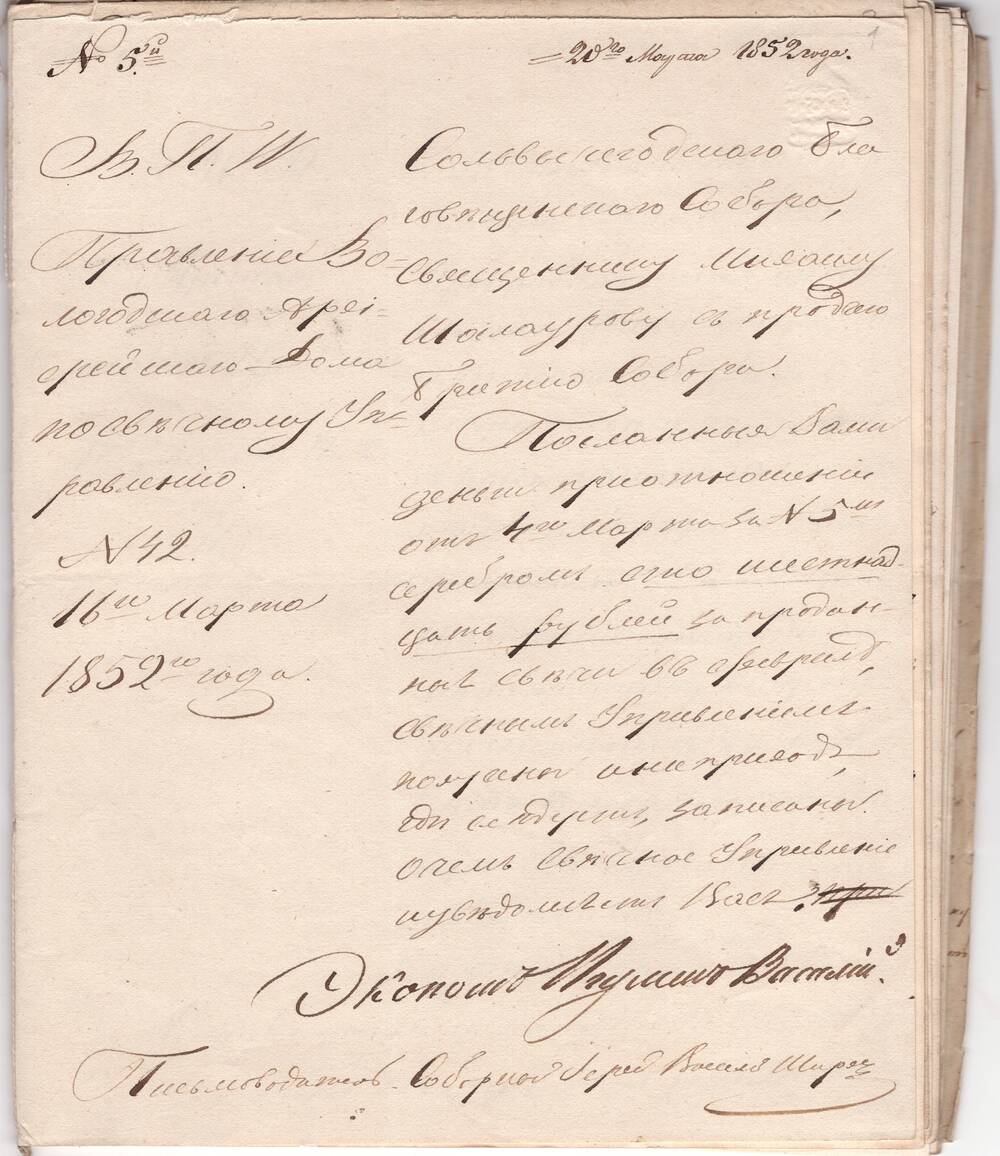 № 5й
20го Марта 1852 года.
1
В. П. И.
Правленіе Во-
логодскаго Архіе-
рейскаго Дома
по свѣчному Уп-
равленію.
N 42.
16го Марта
1852го года.
Сольвычегодскаго Бла
говѣщенскаго Собора,
Священнику Михаилу
Шалаурову съ продаю
братіею Собора.
Посланныя Вами
деньги при отношеніи
отъ 4го Марта за N 5мъ
серебромъ сто шестнад-
цать рублей за продан-
ныя свѣчи въ Февралѣ,
свѣчнымъ Управленіемъ
получены и на приходъ,
гдѣ слѣдуетъ, записаны.
О чемъ Свѣчное Управленіе
и увѣдомляетъ Васъ.
Экономъ Игуменъ Василій.
Письмоводитель Соборной Іерей Василій